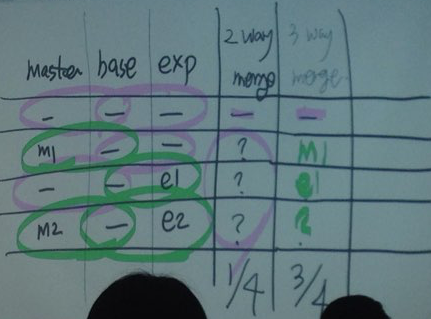 master base exp 2 way merge 3 way merge
— — — — —
m1 — — ? M1
— — e1 ? e1
m2 — e2 ? ?
1/4 3/4